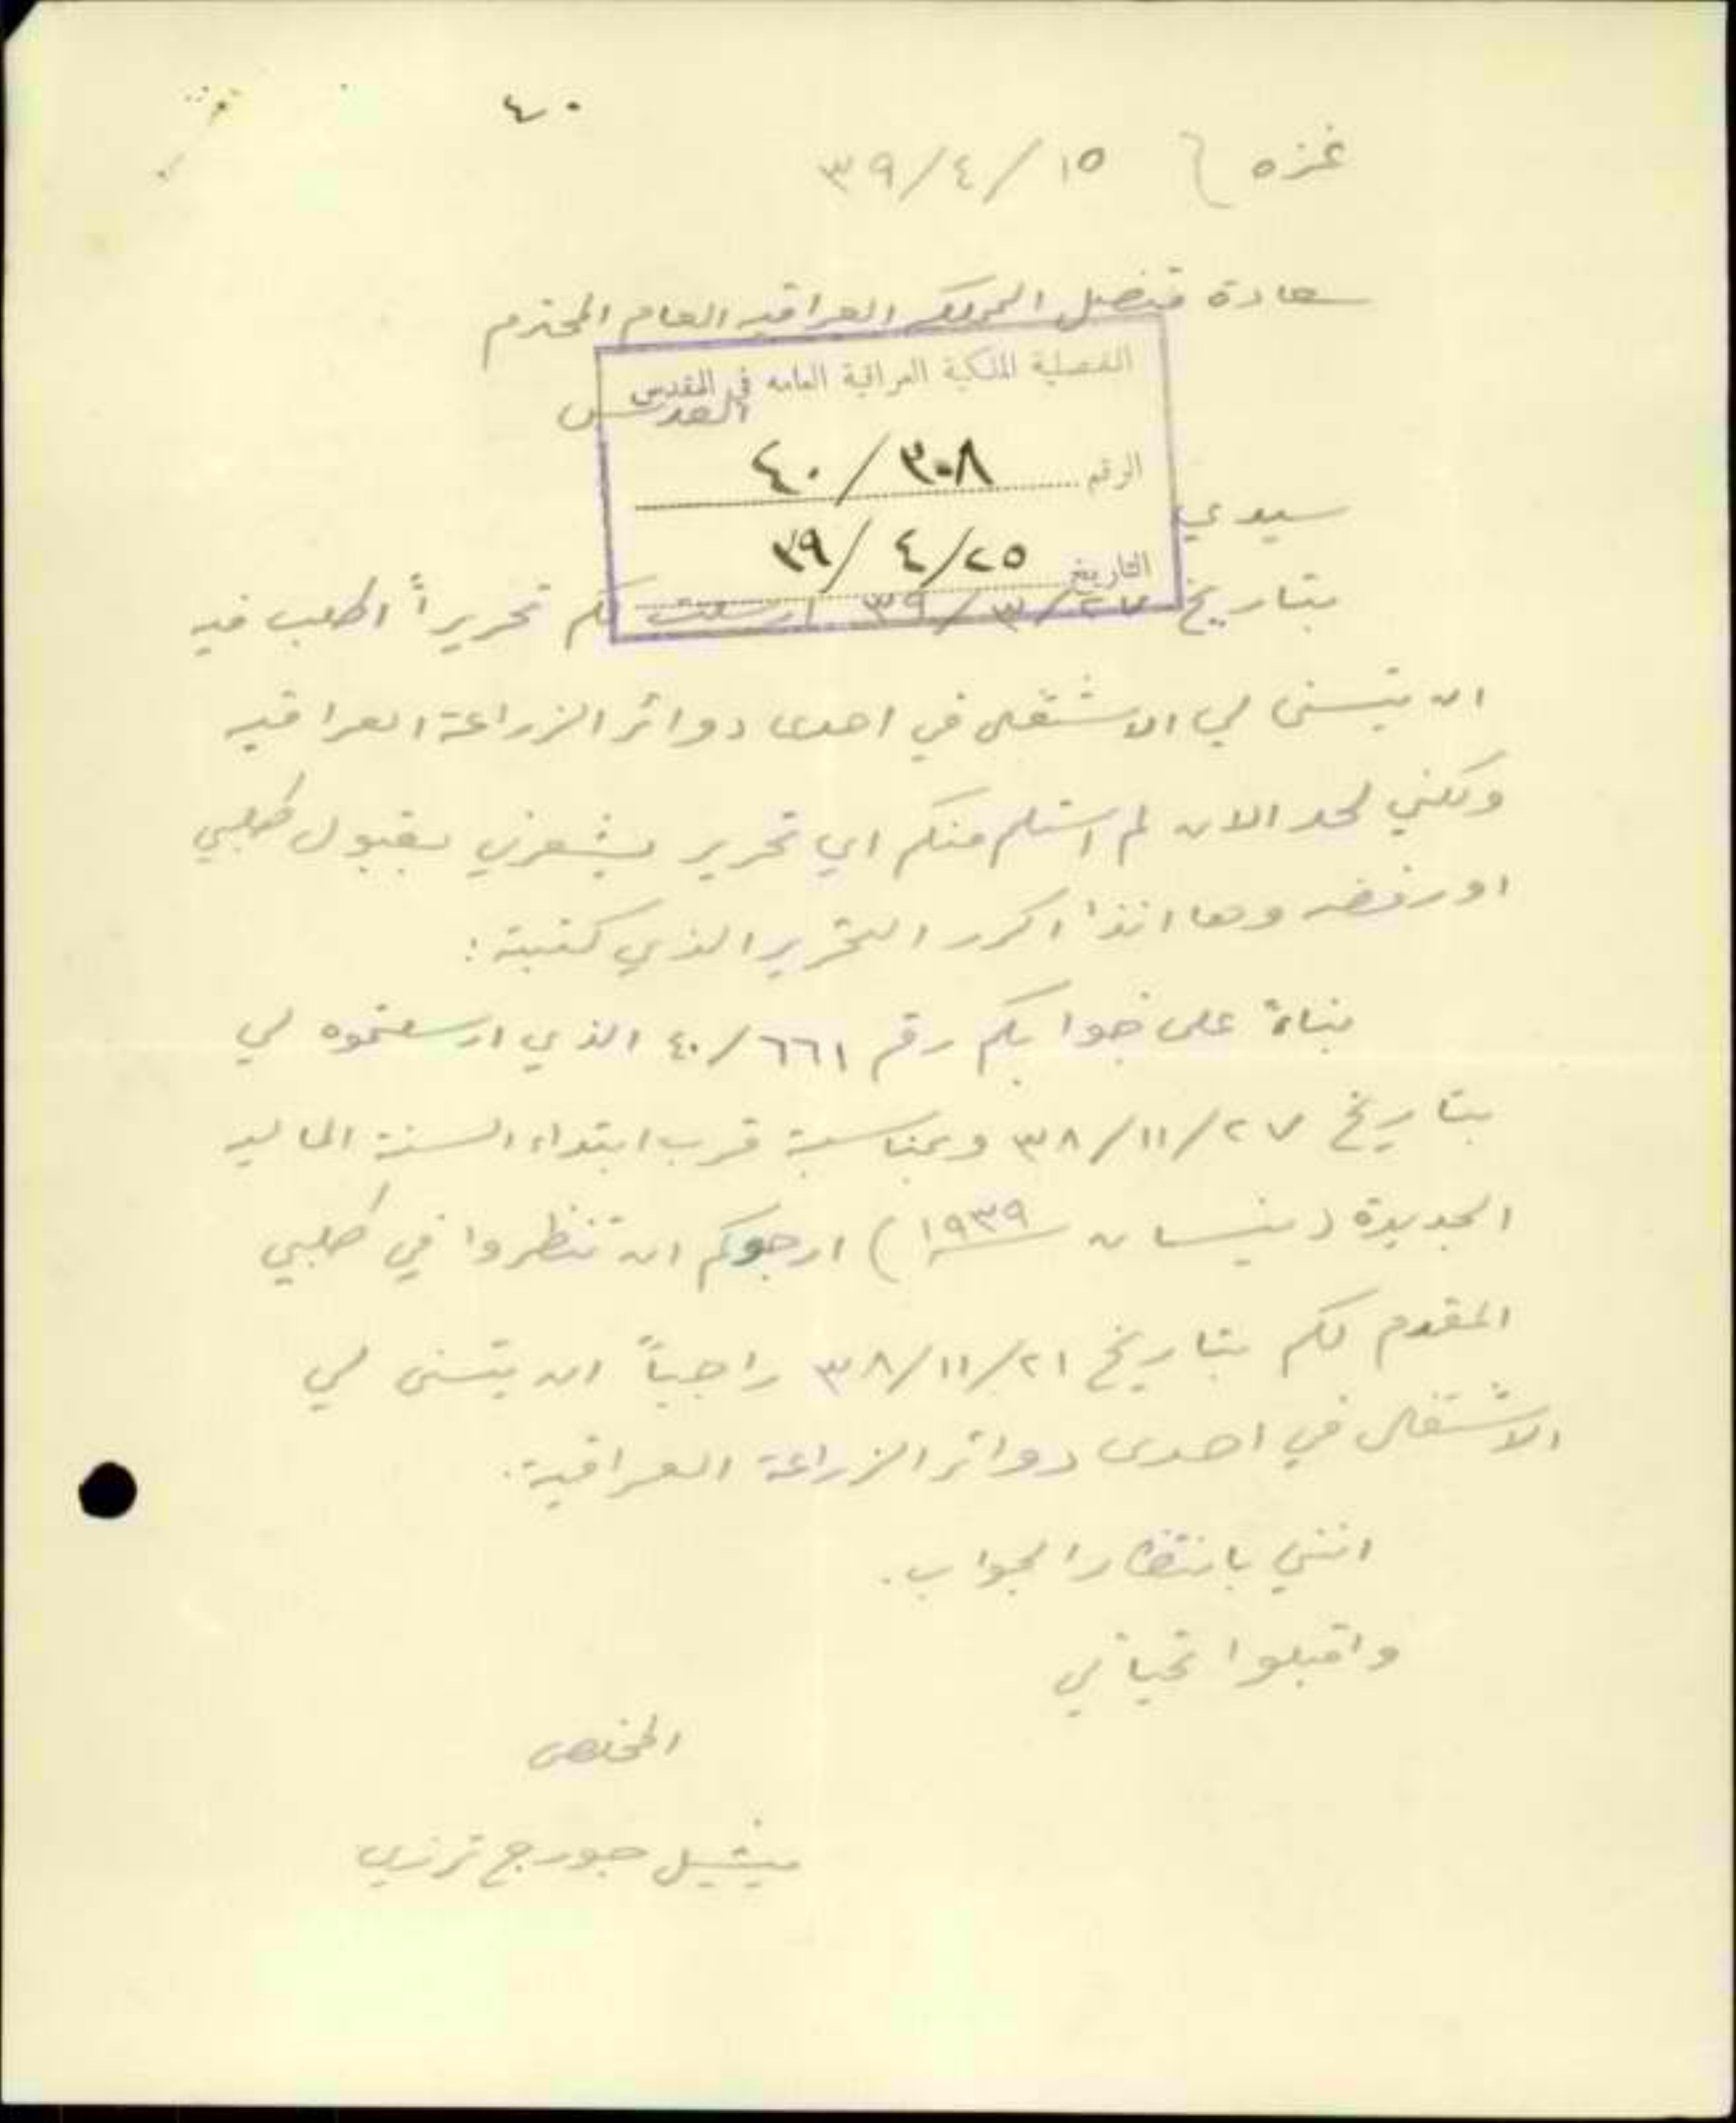 ٤٠
غزه } ١٥/٤/٣٩
سعادة قنصل المملكه العراقيه العام المحترم
القنصلية الملكية العراقية العامه في القدس
القدس
الرقم ٣٠٨/٤٠
سيدي
التاريخ ٢٥/٤/٣٩
بتاريخ ٢٧/٣/٣٩ ارسلت لكم تحريراً اطلب فيه
ان يتسنى لي الاشتغال في احدى دوائر الزراعة العراقيه
ولكني لحد الان لم استلم منكم اي تحرير يشعرني بقبول طلبي
او رفضه وها انذا اكرر التحرير الذي كتبته:
بناءً على جوابكم رقم ٤٠/٦٦١ الذي ارسلتموه لي
بتاريخ ٢٧/١١/٣٨ وبمناسبة قرب ابتداء السنة الماليه
الجديدة (نيسان ١٩٣٩) ارجوكم ان تنظروا في طلبي
المقدم لكم بتاريخ ٢١/١١/٣٨ راجياً ان يتسنى لي
الاشتغال في احدى دوائر الزراعة العراقية.
انني بانتظار الجواب.
واقبلوا تحياتي
المخلص
ميشيل جورج ترزي